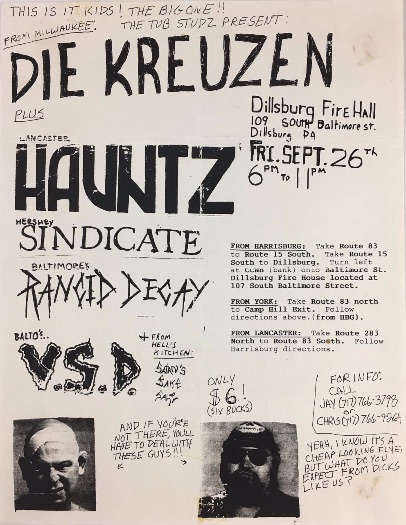 THIS IS IT KIDS! THE BIG ONE!!
FROM MILWAUKEE. THE TUB STUDZ PRESENT:
DIE KREUZEN
PLUS
Dillsburg Fire Hall
109 SOUTH Baltimore st.
Dillsburg PA
FRI. SEPT. 26TH
6PM TO 11PM
LANCASTER
HAUNTZ
HERSHEY
SINDICATE
BALTIMORE'S
RANCID DECAY
BALTO'S..
V.S.D.
+ FROM
HELL'S
KITCHEN:
FROM HARRISBURG: Take Route 83
to Route 15 South. Take Route 15
South to Dillsburg. Turn left
at CCNB (bank) onto Baltimore St.
Dillsburg Fire House located at
107 South Baltimore Street.
FROM YORK: Take Route 83 north
to Camp Hill Exit. Follow
directions above.(from HBG).
FROM LANCASTER: Take Route 283
North to Route 83 South. Follow
Harrisburg directions.
ONLY
$6!
(SIX BUCKS)
FOR INFO:
CALL
JAY (717) 766-3798
or
CHRIS (717) 766-9564
AND IF YOU'RE
NOT THERE, YOU'LL
HAVE TO DEAL WITH
THESE GUYS!!!
YEAH, I KNOW IT'S A
CHEAP LOOKING FLYER,
BUT WHAT DO YOU
EXPECT FROM DICKS
LIKE US?